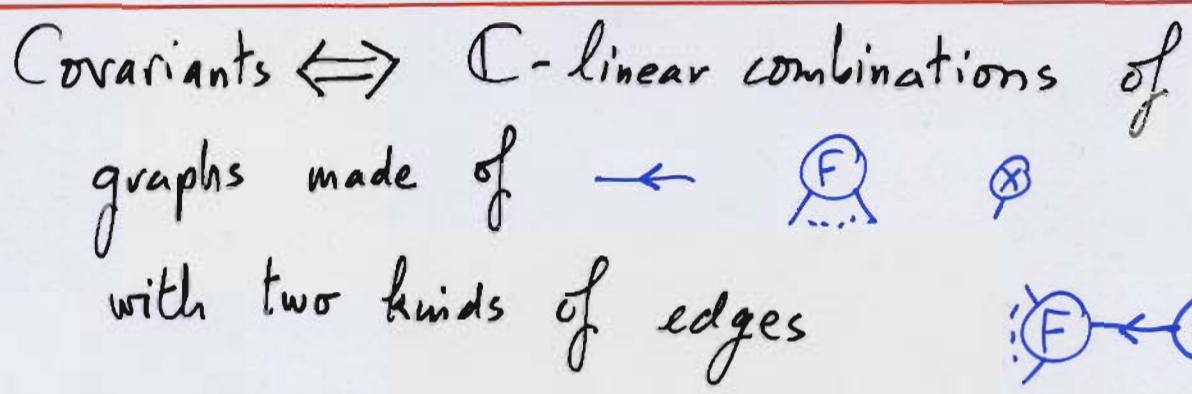 Covariants ⟺ ℂ-linear combinations of
graphs made of F x
with two kinds of edges F